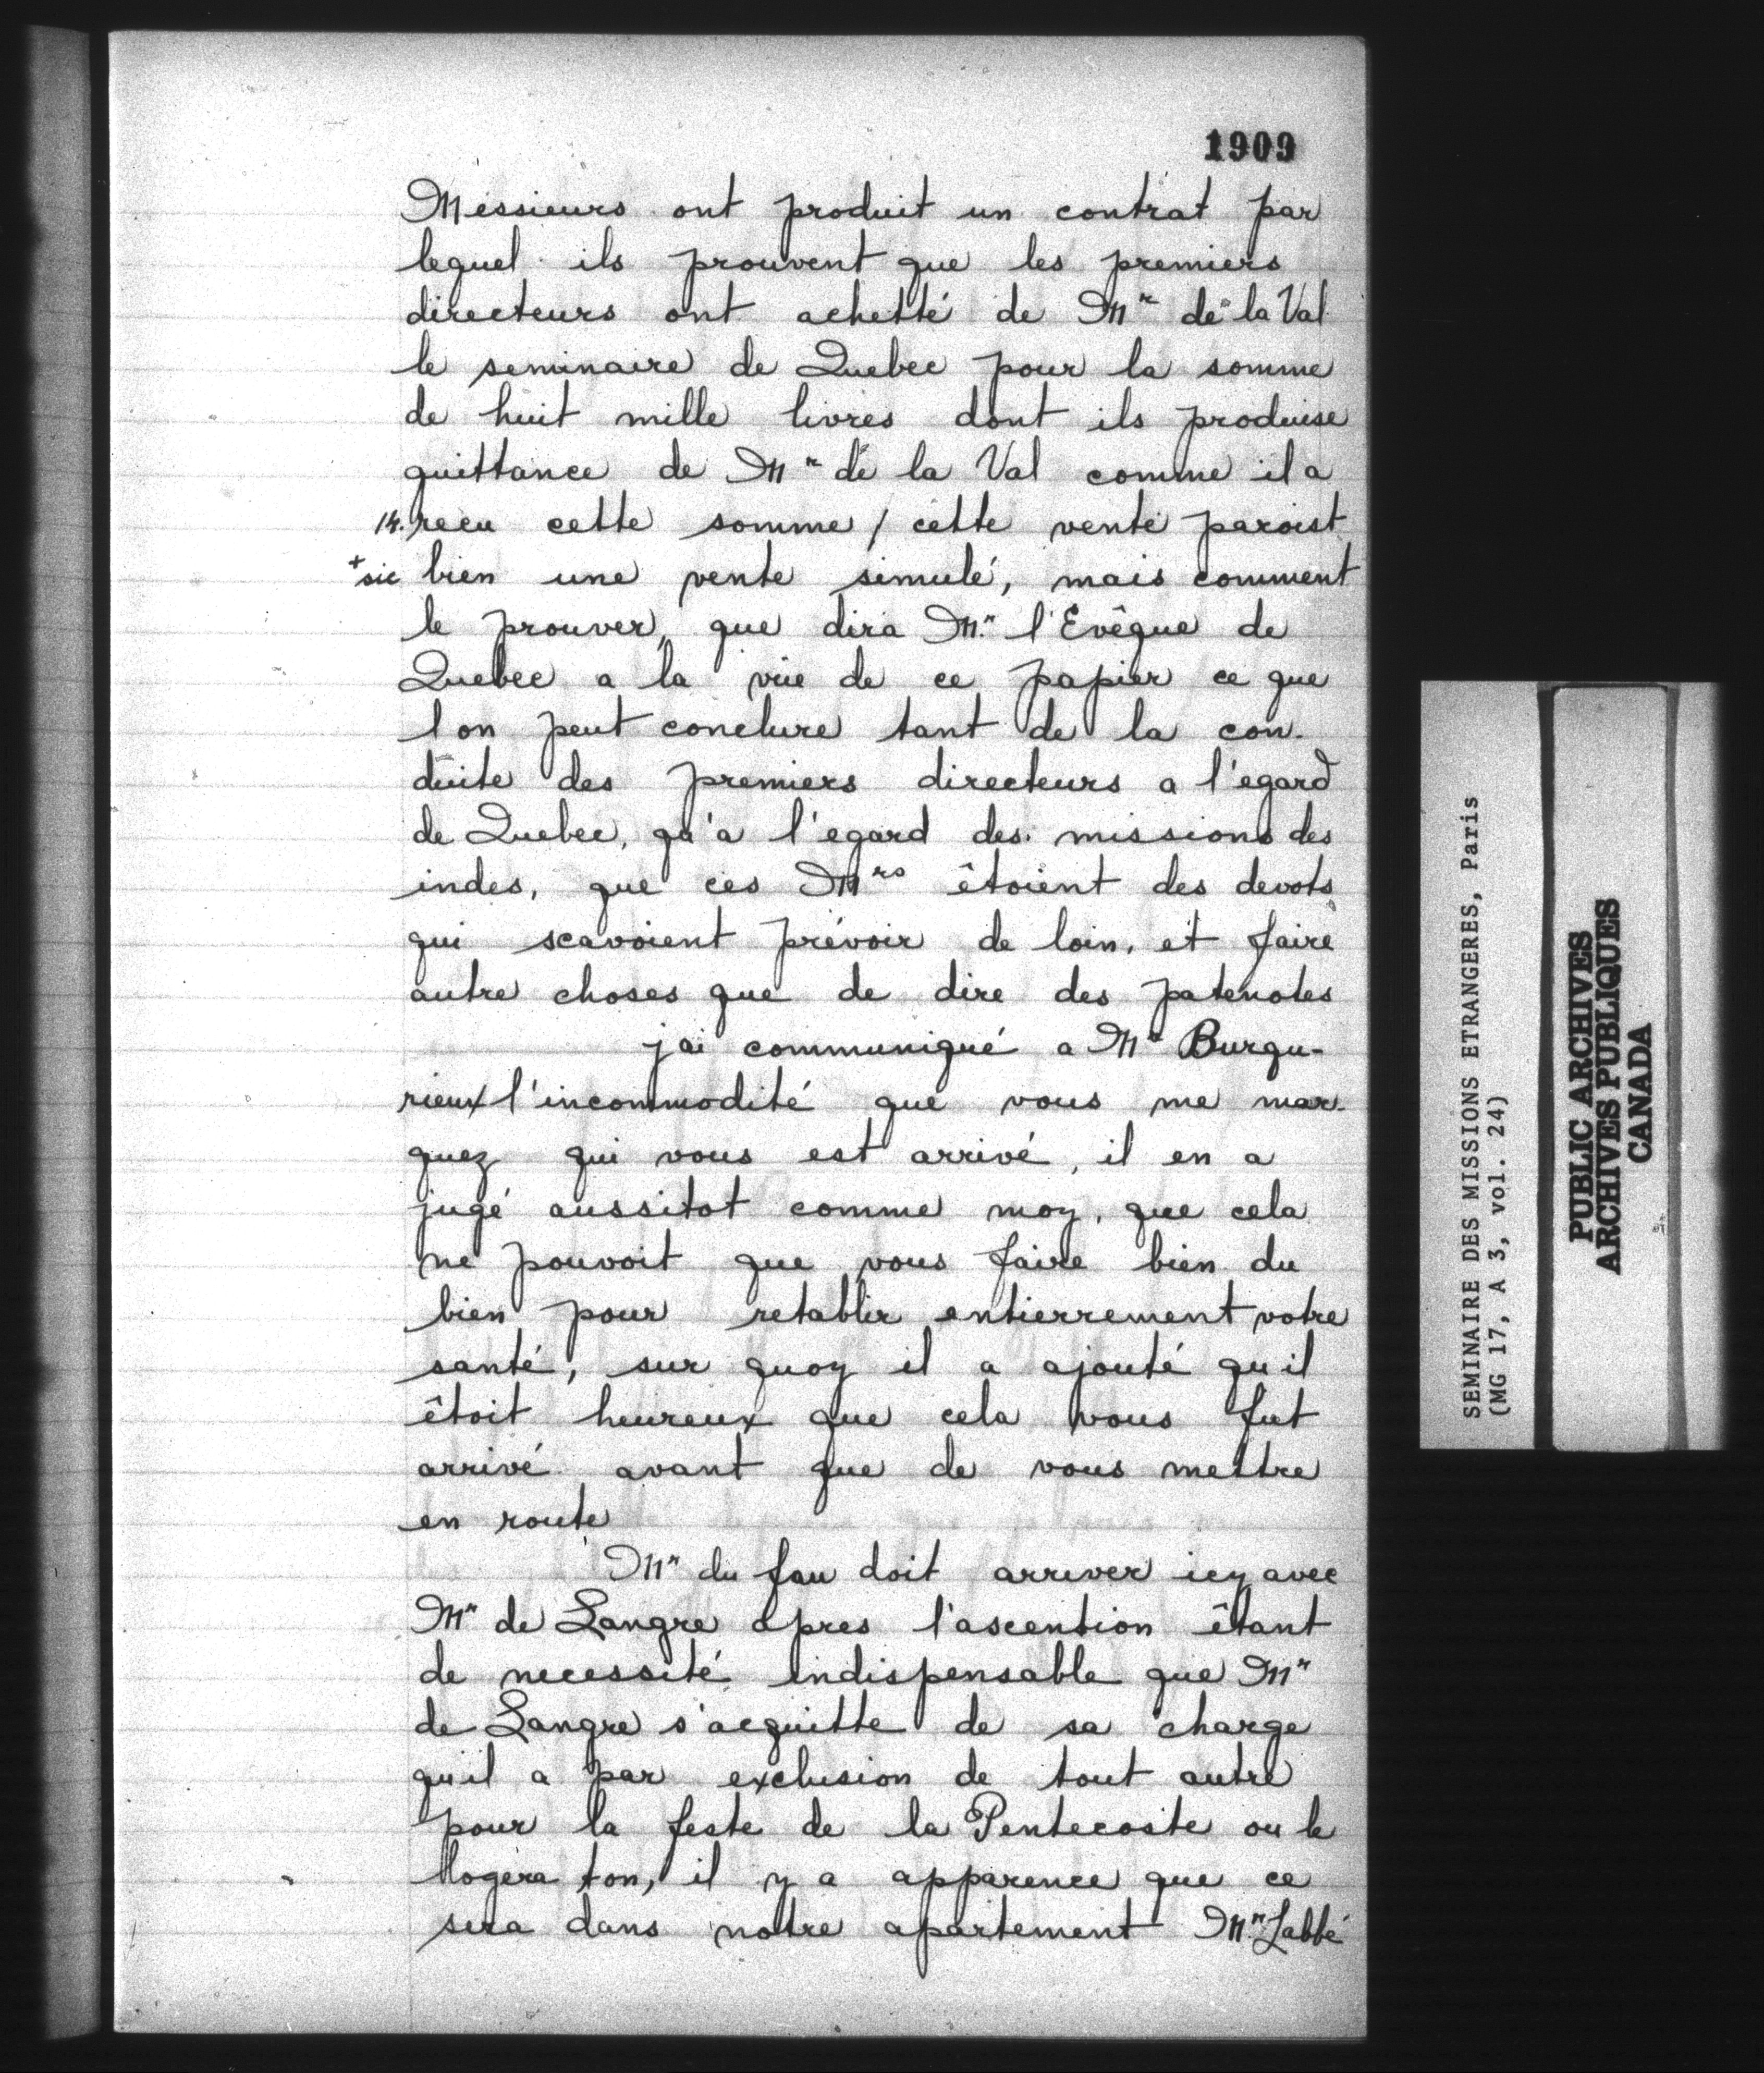 1909
Messieurs ont produit un contrat par
lequel ils prouvent que les premiers
directeurs ont achetté de Mr de la Val
le seminaire de Quebec pour la somme
de huit mille livres dont ils produise
quittance de Mr de la Val comme il a
14. recu cette somme / cette vente paroist
+sic bien une vente simulé, mais comment
le prouver, que dira Mr. l'Evêque de
Quebec a la vüe de ce papier ce que
l on peut conclure tant de la con-
duite des premiers directeurs a l'egard
de Quebec, qu'a l'egard des missions des
indes, que ces Mrs êtoient des devots
qui scavoient prévoir de loin, et faire
autre choses que de dire des patenotes
j ai communiqué a Mr Burgu-
rieux l'incommodité que vous me mar-
quez qui vous est arrivé, il en a
jugé aussitot comme moy, que cela
ne pouvoit que vous faire bien du
bien pour retablir entierrement votre
santé, sur quoy il a ajouté qu il
êtoit heureux que cela vous fut
arrivé avant que de vous mettre
en route
Mr du fau doit arriver icy avec
Mr de Langre apres l'ascention êtant
de necessité indispensable que Mr
de Langre s'acquitte de sa charge
qu'il a par exclusion de tout autre
pour la feste de la Pentecoste ou le
logera ton, il y a apparence que ce
sera dans notre apartement Mr. Labbé
SEMINAIRE DES MISSIONS ETRANGERES, Paris
(MG 17, A 3, vol. 24)
PUBLIC ARCHIVES
ARCHIVES PUBLIQUES
CANADA